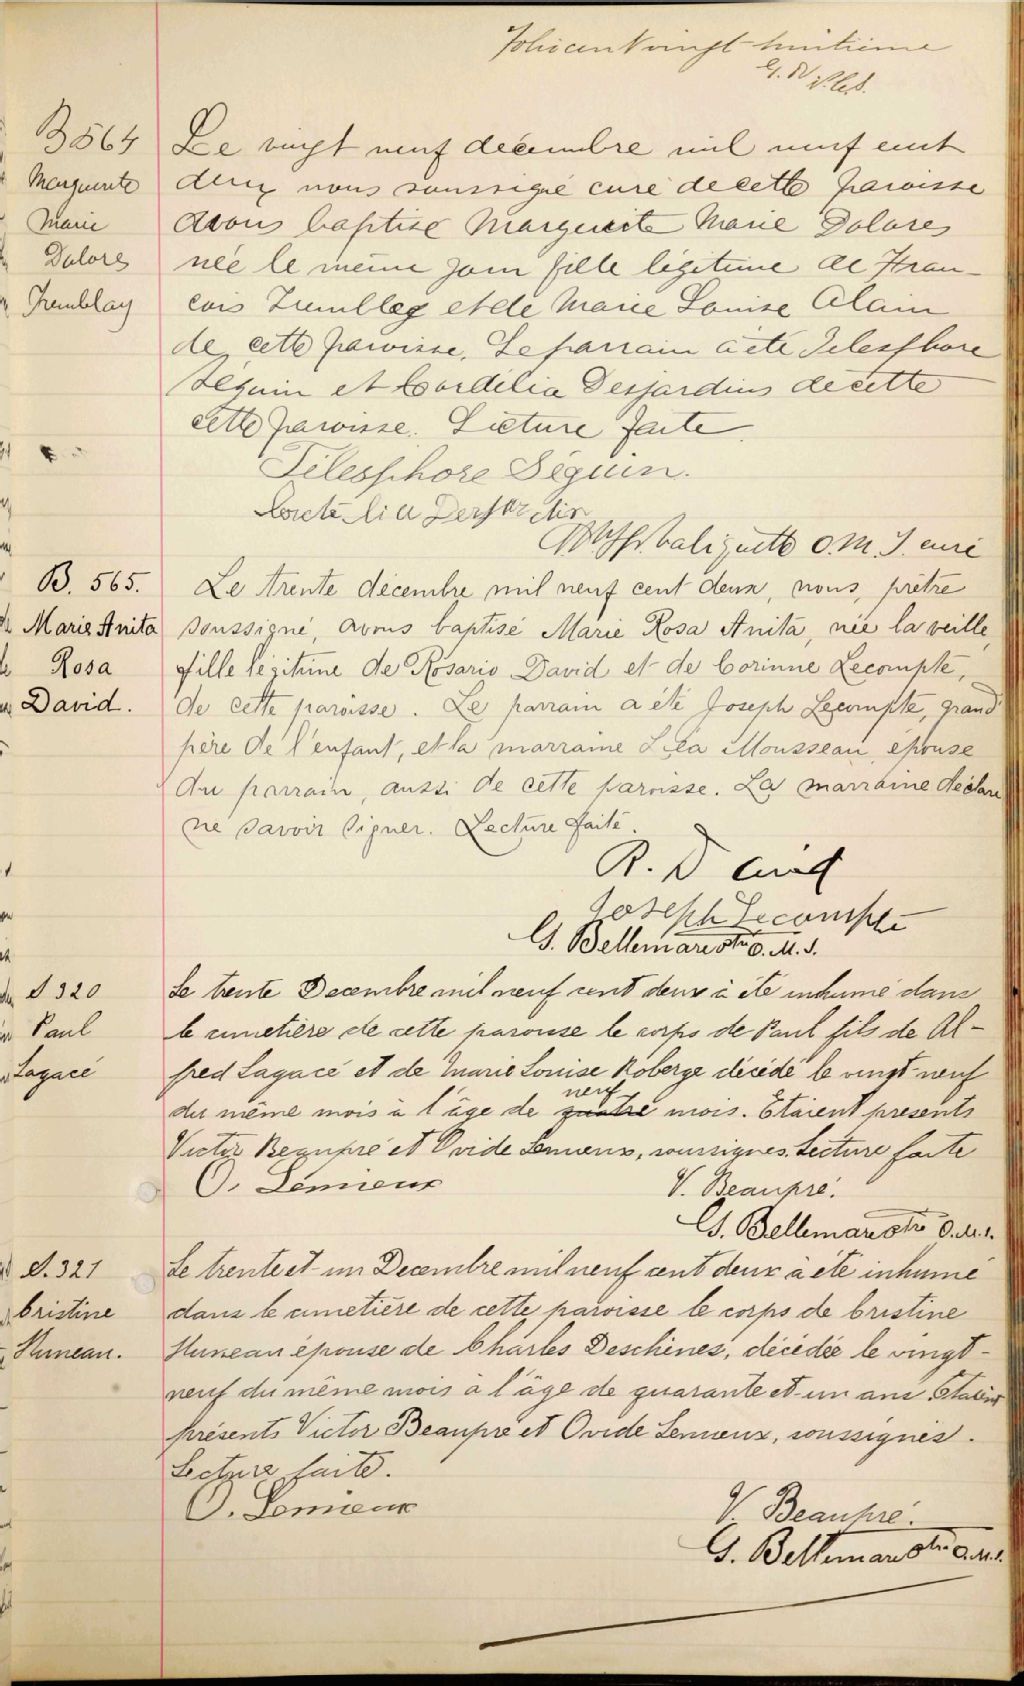 Folio cent vingt-huitième
B 564
Marguerite
Marie
Dolores
Tremblay
Le vingt neuf décembre mil neuf cent
deux nous soussigné curé de cette paroisse
avons baptisé Marguerite Marie Dolores
née le même jour fille légitime de Fran-
cois Tremblay et de Marie Louise Alain
de cette paroisse. Le parrain a été Télesphore
Séguin et Cordélia Desjardins de cette
cette paroisse. Lecture faite
Télesphore Séguin.
Cordélia Desjardin
Valiquette O.M.I. curé
B. 565.
Marie Anita
Rosa
David.
Le trente décembre mil neuf cent deux, nous, prêtre
soussigné, avons baptisé Marie Rosa Anita, née la veille,
fille légitime de Rosario David et de Corinne Lecompte,
de cette paroisse. Le parrain a été Joseph Lecompte, grand
père de l'enfant, et la marraine Léa Mousseau, épouse
du parrain, aussi de cette paroisse. La marraine déclare
ne savoir signer. Lecture faite.
R. David
Joseph Lecompte
G. Bellemare ptre O.M.I.
S 320
Paul
Lagacé
Le trente Decembre mil neuf cent deux à été inhumé dans
le cimetière de cette paroisse le corps de Paul fils de Al-
fred Lagacé et de Marie Louise Roberge décédé le vingt-neuf
neuf
du même mois à l'âge de quatre mois. Etaient présents
Victor Beaupré et Ovide Lemieux, soussignes. Lecture faite
O. Lemieux
V. Beaupré.
G. Bellemare ptre O.M.I.
S. 321
Cristine
Huneau.
Le trente et un Decembre mil neuf cent deux à été inhumé
dans le cimetière de cette paroisse le corps de Cristine
Huneau épouse de Charles Deschênes, décédée le vingt-
neuf du même mois à l'âge de quarante et un ans. Etaient
présents Victor Beaupré et Ovide Lemieux, soussignés.
Lecture faite.
O. Lemieux
V. Beaupré.
G. Bellemare ptre O.M.I.